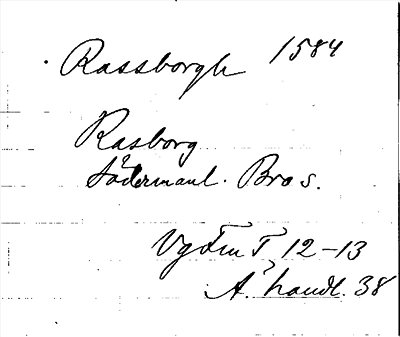 Rassborgh 1584
Rasborg
Södermanl. Bro s.
Vg Fm T, 12-13
A. handl. 38